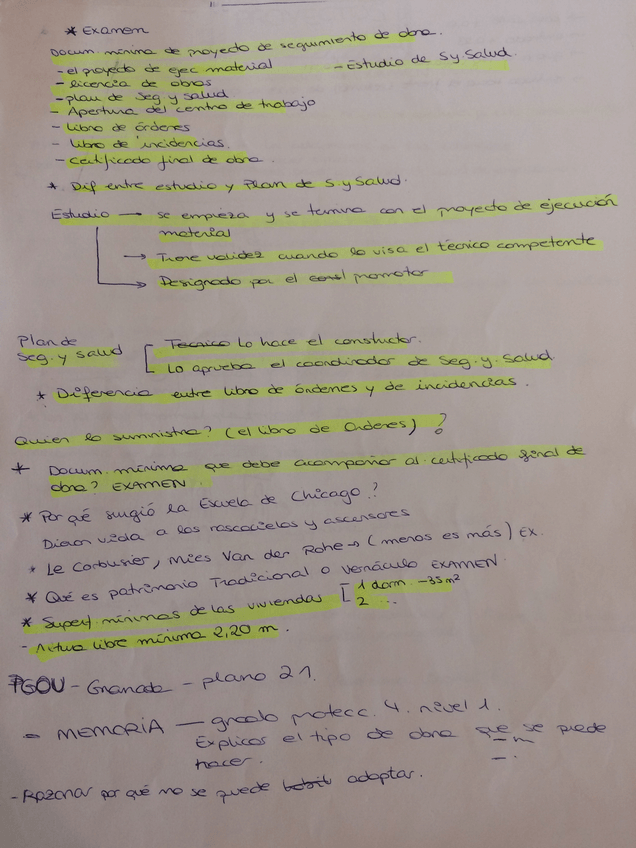 * Examen
Docum. mínima de proyecto de seguimiento de obra.
- el proyecto de ejec material - Estudio de S y Salud.
- licencia de obras
- plan de seg y salud
- Apertura del centro de trabajo
- Libro de órdenes
- Libro de incidencias.
- Certificado final de obra.
* Dif entre estudio y Plan de S. y Salud.
Estudio → se empieza y se termina con el proyecto de ejecución
material
→ Tiene validez cuando lo visa el técnico competente
→ Designado por el promotor
Plan de
Seg. y salud
[ Tecnico Lo hace el constructor.
Lo aprueba el coordinador de Seg. y Salud
* Diferencia entre libro de órdenes y de incidencias.
Quien lo suministra? (el libro de Ordenes) ?
* Docum. mínima que debe acompañar al certificado final de
obra? EXAMEN.
* Por qué surgió la Escuela de Chicago?
Dieron vida a los rascacielos y ascensores
* Le Corbusier, Mies Van der Rohe → (menos es más) EX.
* Qué es patrimonio Tradicional o Vernáculo EXAMEN.
* Superf. mínimas de las viviendas [ 1 dorm - 35 m²
2 ...
- Altura libre mínima 2,20 m.
PGOU - Granada - plano 21.
- MEMORIA — grado protecc. 4. nivel 1.
Explicar el tipo de obra que se puede
hacer.
- Razonar por qué no se puede adoptar.